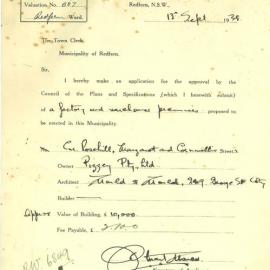 Valuation No. 687
Redfern Ward.
Redfern, N.S.W.
15 Sept 1938
The Town Clerk,
Municipality of Redfern.
Sir,
I hereby make an application for the approval by the
Council of the Plans and Specifications (which I herewith submit)
of a factory and warehouse premises proposed to
be erected in this Municipality.
Cr. Rosehill, Margaret and Cornwallis Streets
Owner Pizzey Pty. Ltd
Architect Mould & Mould, 249 George St City
Builder
Approx Value of Building £ 10,000
Fee Payable, £
BW 6849